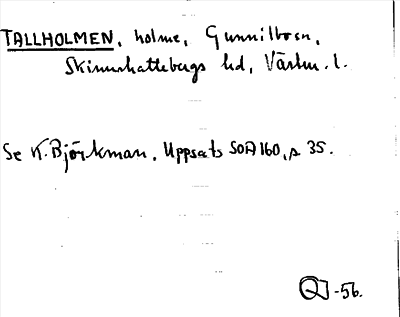 TALLHOLMEN, holme, Gunnilbosn,
Skinnskattebergs hd, Västm. l.
Se K. Björkman, Uppsats SOA 160, s 35.
-56.